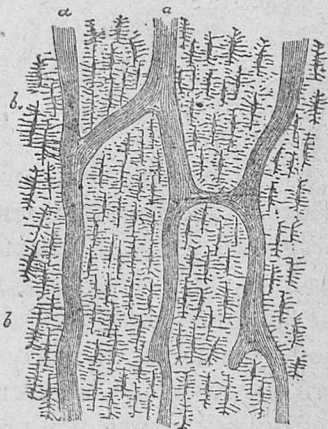 a a
b.
b